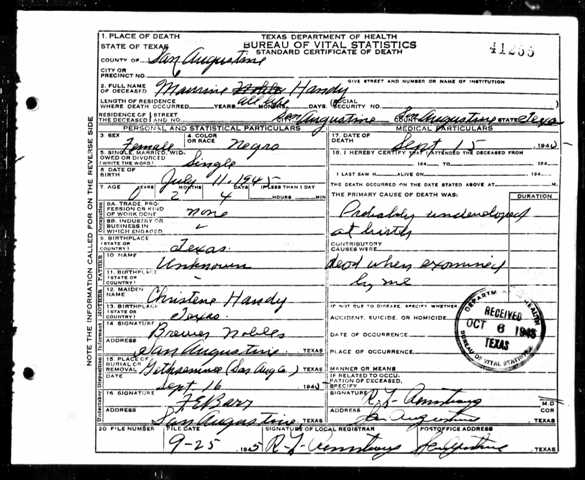 TEXAS DEPARTMENT OF HEALTH
BUREAU OF VITAL STATISTICS
STANDARD CERTIFICATE OF DEATH
41255
1. PLACE OF DEATH
STATE OF TEXAS
COUNTY OF San Augustine
CITY OR PRECINCT NO.
GIVE STREET AND NUMBER OR NAME OF INSTITUTION
2. FULL NAME OF DECEASED Maurine Handy
LENGTH OF RESIDENCE WHERE DEATH OCCURRED YEARS all life MONTHS DAYS (SOCIAL SECURITY NO.
RESIDENCE OF THE DECEASED STREET AND NO. San Augustine COUNTY San Augustine STATE Texas
PERSONAL AND STATISTICAL PARTICULARS
MEDICAL PARTICULARS
3. SEX Female
4. COLOR OR RACE Negro
5. SINGLE, MARRIED, WID-OWED OR DIVORCED (WRITE THE WORD) Single
6. DATE OF BIRTH July 11-1945
7. AGE 0 2 4 IF LESS THAN 1 DAY HOURS MIN.
8A. TRADE, PROFESSION OR KIND OF WORK DONE none
8B. INDUSTRY OR BUSINESS IN WHICH ENGAGED "
9. BIRTHPLACE (STATE OR COUNTRY) Texas
10. NAME Unknown
11. BIRTHPLACE (STATE OR COUNTRY)
12. MAIDEN NAME Christene Handy
13. BIRTHPLACE (STATE OR COUNTRY) Texas
14. SIGNATURE Brewer Nobles
ADDRESS San Augustine TEXAS
15. PLACE OF BURIAL OR REMOVAL Gethsemane (San Aug Co.) TEXAS
DATE Sept 16 194
16. SIGNATURE
ADDRESS San Augustine TEXAS
17. DATE OF DEATH Sept 15 194
18. I HEREBY CERTIFY THAT I ATTENDED THE DECEASED FROM
194 TO 194
I LAST SAW H ALIVE ON 194
THE DEATH OCCURRED ON THE DATE STATED ABOVE AT M.
THE PRIMARY CAUSE OF DEATH WAS:
DURATION
Probably undeveloped
at birth
CONTRIBUTORY CAUSES WERE:
dead when examined
by me
IF NOT DUE TO DISEASE, SPECIFY WHETHER:
ACCIDENT, SUICIDE, OR HOMICIDE
DATE OF OCCURRENCE
PLACE OF OCCURRENCE
MANNER OR MEANS
IF RELATED TO OCCUPATION OF DECEASED, SPECIFY
RECEIVED
OCT 6
TEXAS
BUREAU OF VITAL STATISTICS
SIGNATURE R. L. Armstrong M.D.
ADDRESS San Augustine TEXAS
20. FILE NUMBER
FILE DATE 9-25 1945
SIGNATURE OF LOCAL REGISTRAR R. L. Armstrong
POSTOFFICE ADDRESS San Augustine
NOTE THE INFORMATION CALLED FOR ON THE REVERSE SIDE